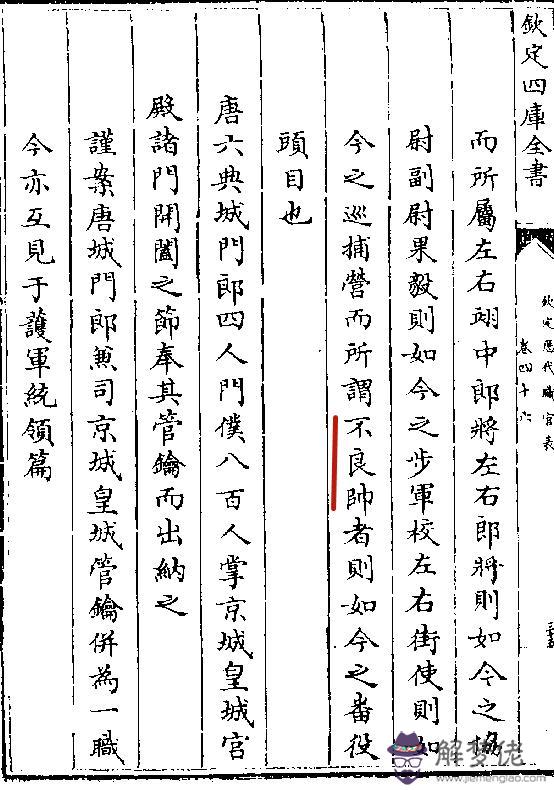 欽定四庫全書
欽定歷代職官表
卷四十六
而所屬左右翊中郎將左右郎將則如今之協
尉副尉果毅則如今之步軍校左右街使則如
今之巡捕營而所謂不良帥者則如今之番役
頭目也
唐六典城門郎四人門僕八百人掌京城皇城宮
殿諸門開闔之節奉其管鑰而出納之
謹案唐城門郎兼司京城皇城管鑰併為一職
今亦互見于護軍統領篇
解梦佬
www.jiemenglao.com